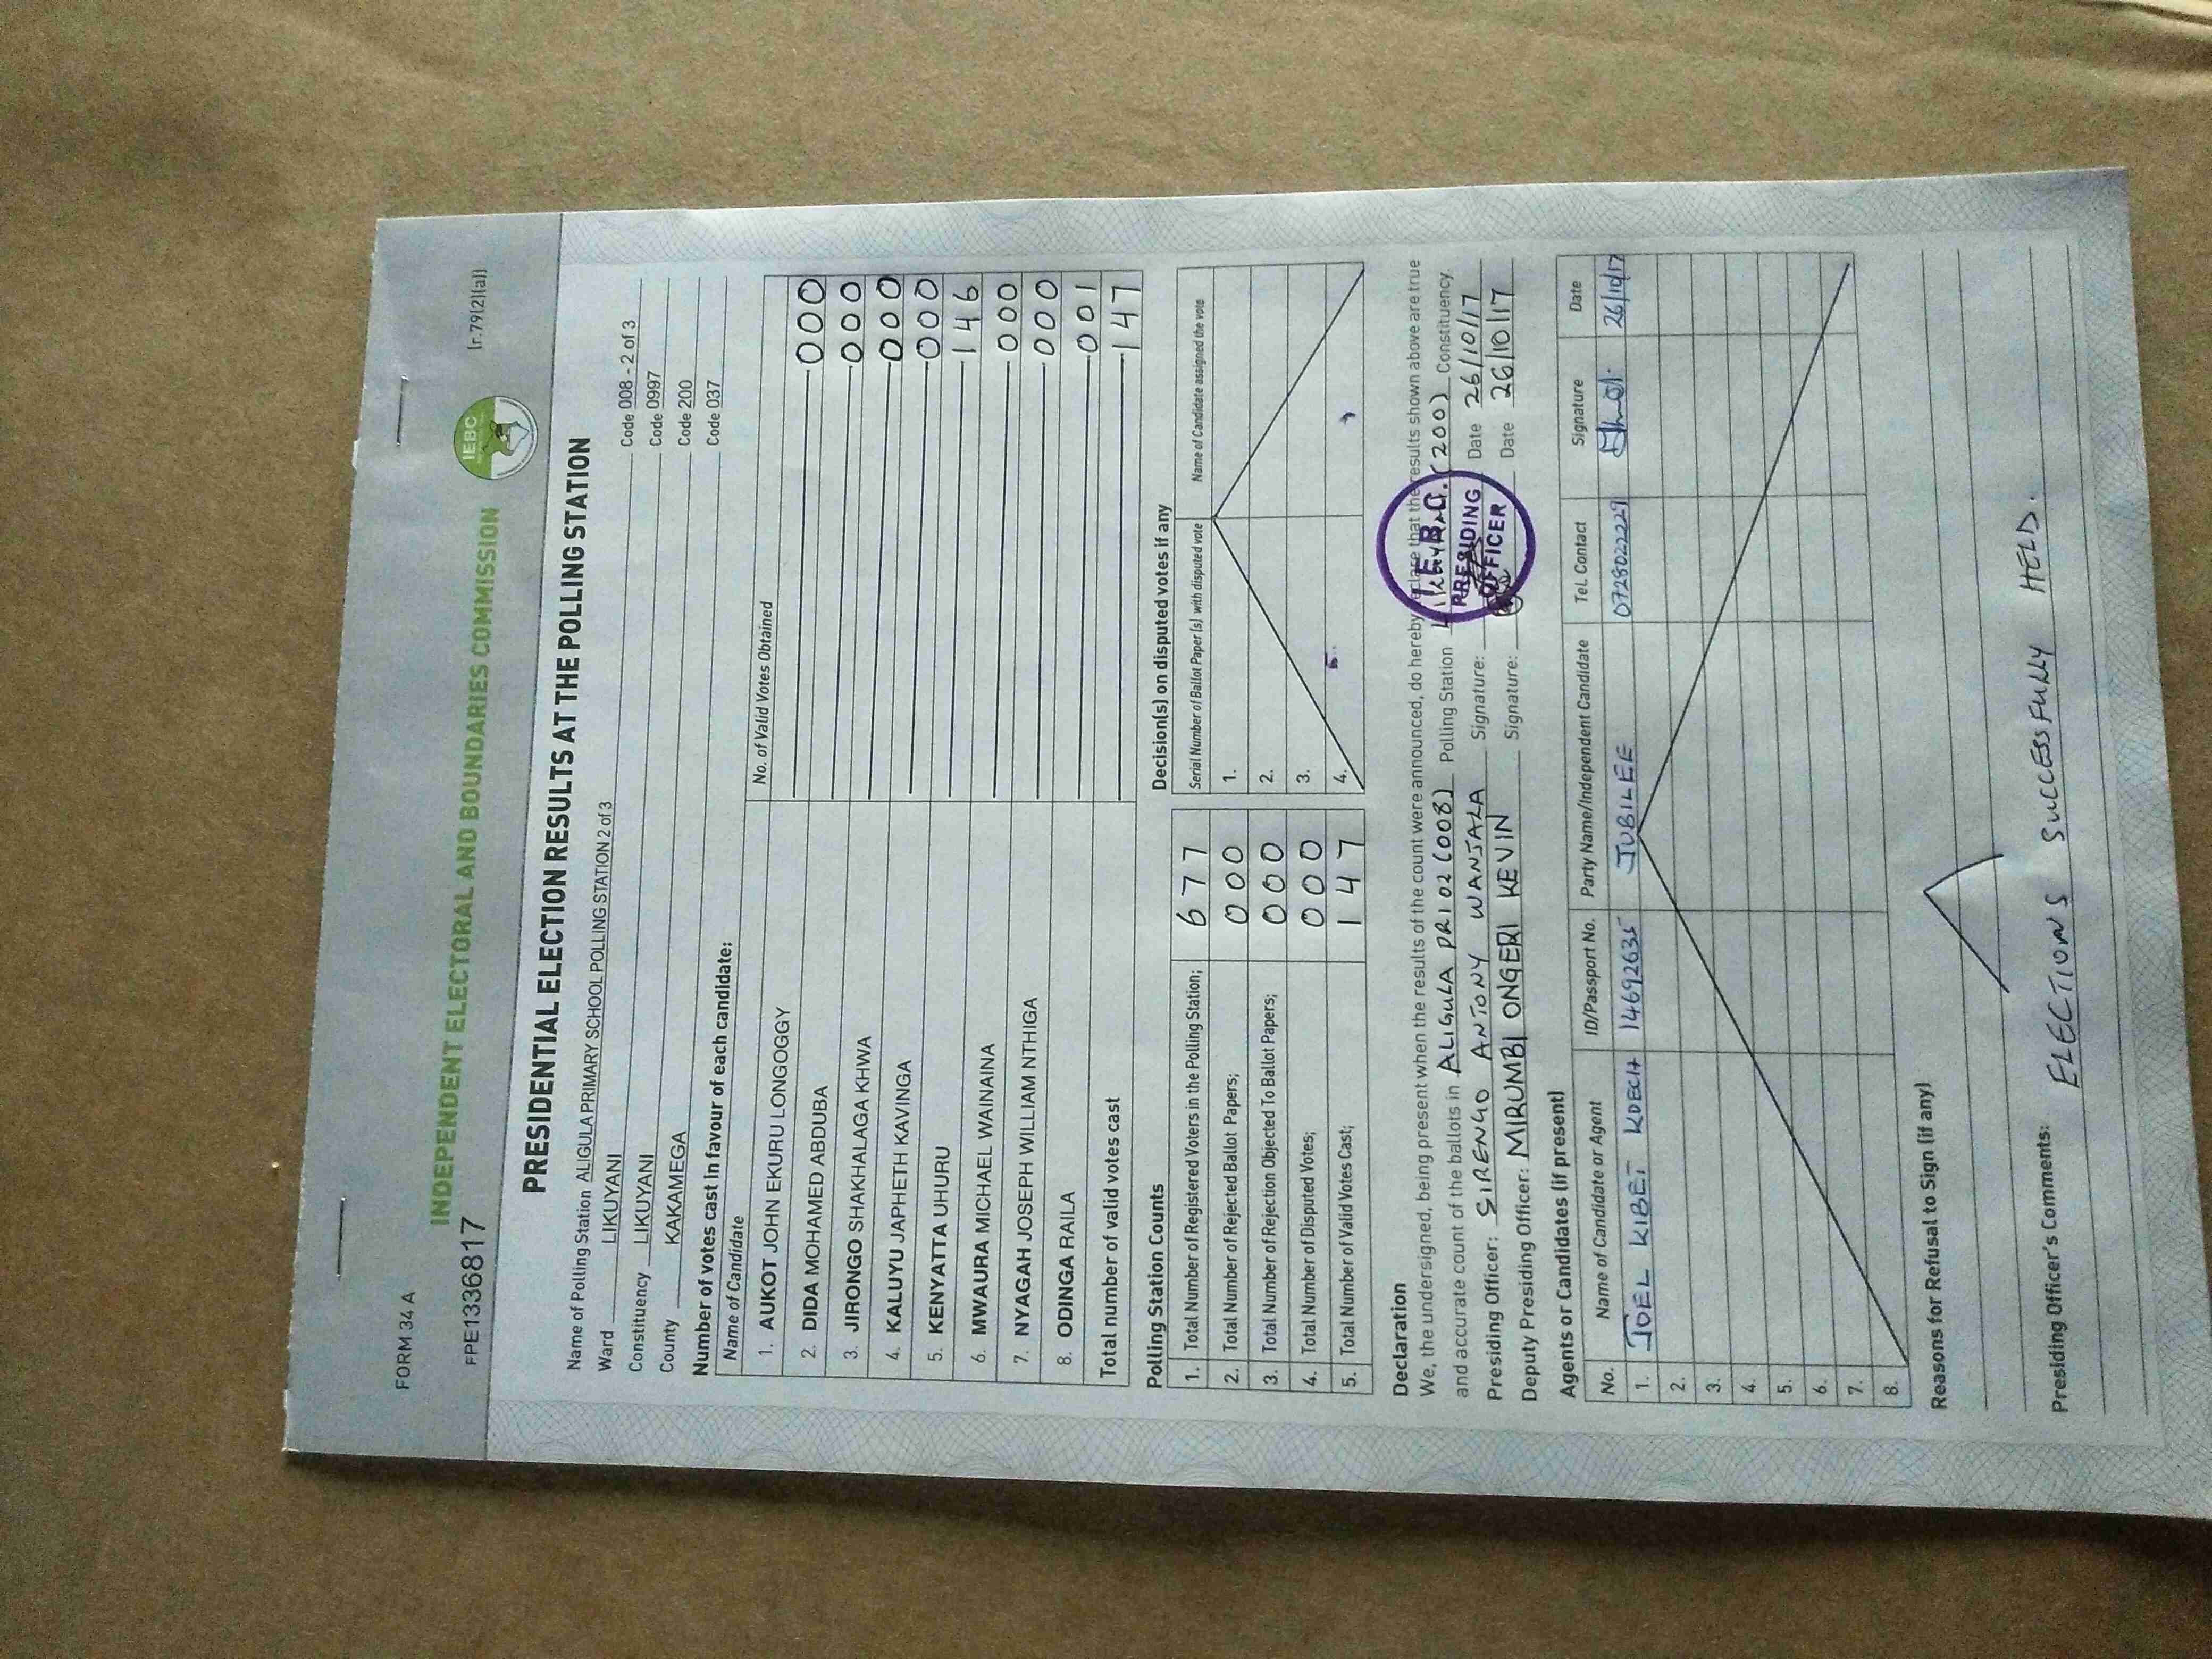 FORM 34 A
INDEPENDENT ELECTORAL AND BOUNDARIES COMMISSION
IEBC
FPE1336817
(r.79(2)(a))
PRESIDENTIAL ELECTION RESULTS AT THE POLLING STATION
Name of Polling Station ALIGULA PRIMARY SCHOOL POLLING STATION 2 of 3 Code 008 - 2 of 3
Ward LIKUYANI Code 0997
Constituency LIKUYANI Code 200
County KAKAMEGA Code 037
Number of votes cast in favour of each candidate:
Name of Candidate No. of Valid Votes Obtained
1. AUKOT JOHN EKURU LONGOGGY 000
2. DIDA MOHAMED ABDUBA 000
3. JIRONGO SHAKHALAGA KHWA 000
4. KALUYU JAPHETH KAVINGA 000
5. KENYATTA UHURU 146
6. MWAURA MICHAEL WAINAINA 000
7. NYAGAH JOSEPH WILLIAM NTHIGA 000
8. ODINGA RAILA 001
Total number of valid votes cast 147
Polling Station Counts
1. Total Number of Registered Voters in the Polling Station; 677
2. Total Number of Rejected Ballot Papers; 000
3. Total Number of Rejection Objected To Ballot Papers; 000
4. Total Number of Disputed Votes; 000
5. Total Number of Valid Votes Cast; 147
Decision(s) on disputed votes if any
Serial Number of Ballot Paper (s) with disputed vote Name of Candidate assigned the vote
1.
2.
3.
4.
Declaration
We, the undersigned, being present when the results of the count were announced, do hereby declare that the results shown above are true
and accurate count of the ballots in ALIGULA PRI 02 (008) Polling Station (200) Constituency.
Presiding Officer: SIRENGO ANTONY WANJALA Signature: Date 26/10/17
Deputy Presiding Officer: MIRUMBI ONGERI KEVIN Signature: Date 26/10/17
I.E.B.C.
PRESIDING
OFFICER
Agents or Candidates (if present)
No. Name of Candidate or Agent ID/Passport No. Party Name/Independent Candidate Tel. Contact Signature Date
1. JOEL KIBET KOECH 14692635 JUBILEE 0728022229 26/10/17
2.
3.
4.
5.
6.
7.
8.
Reasons for Refusal to Sign (if any)
Presiding Officer's Comments: ELECTIONS SUCCESSFULLY HELD.